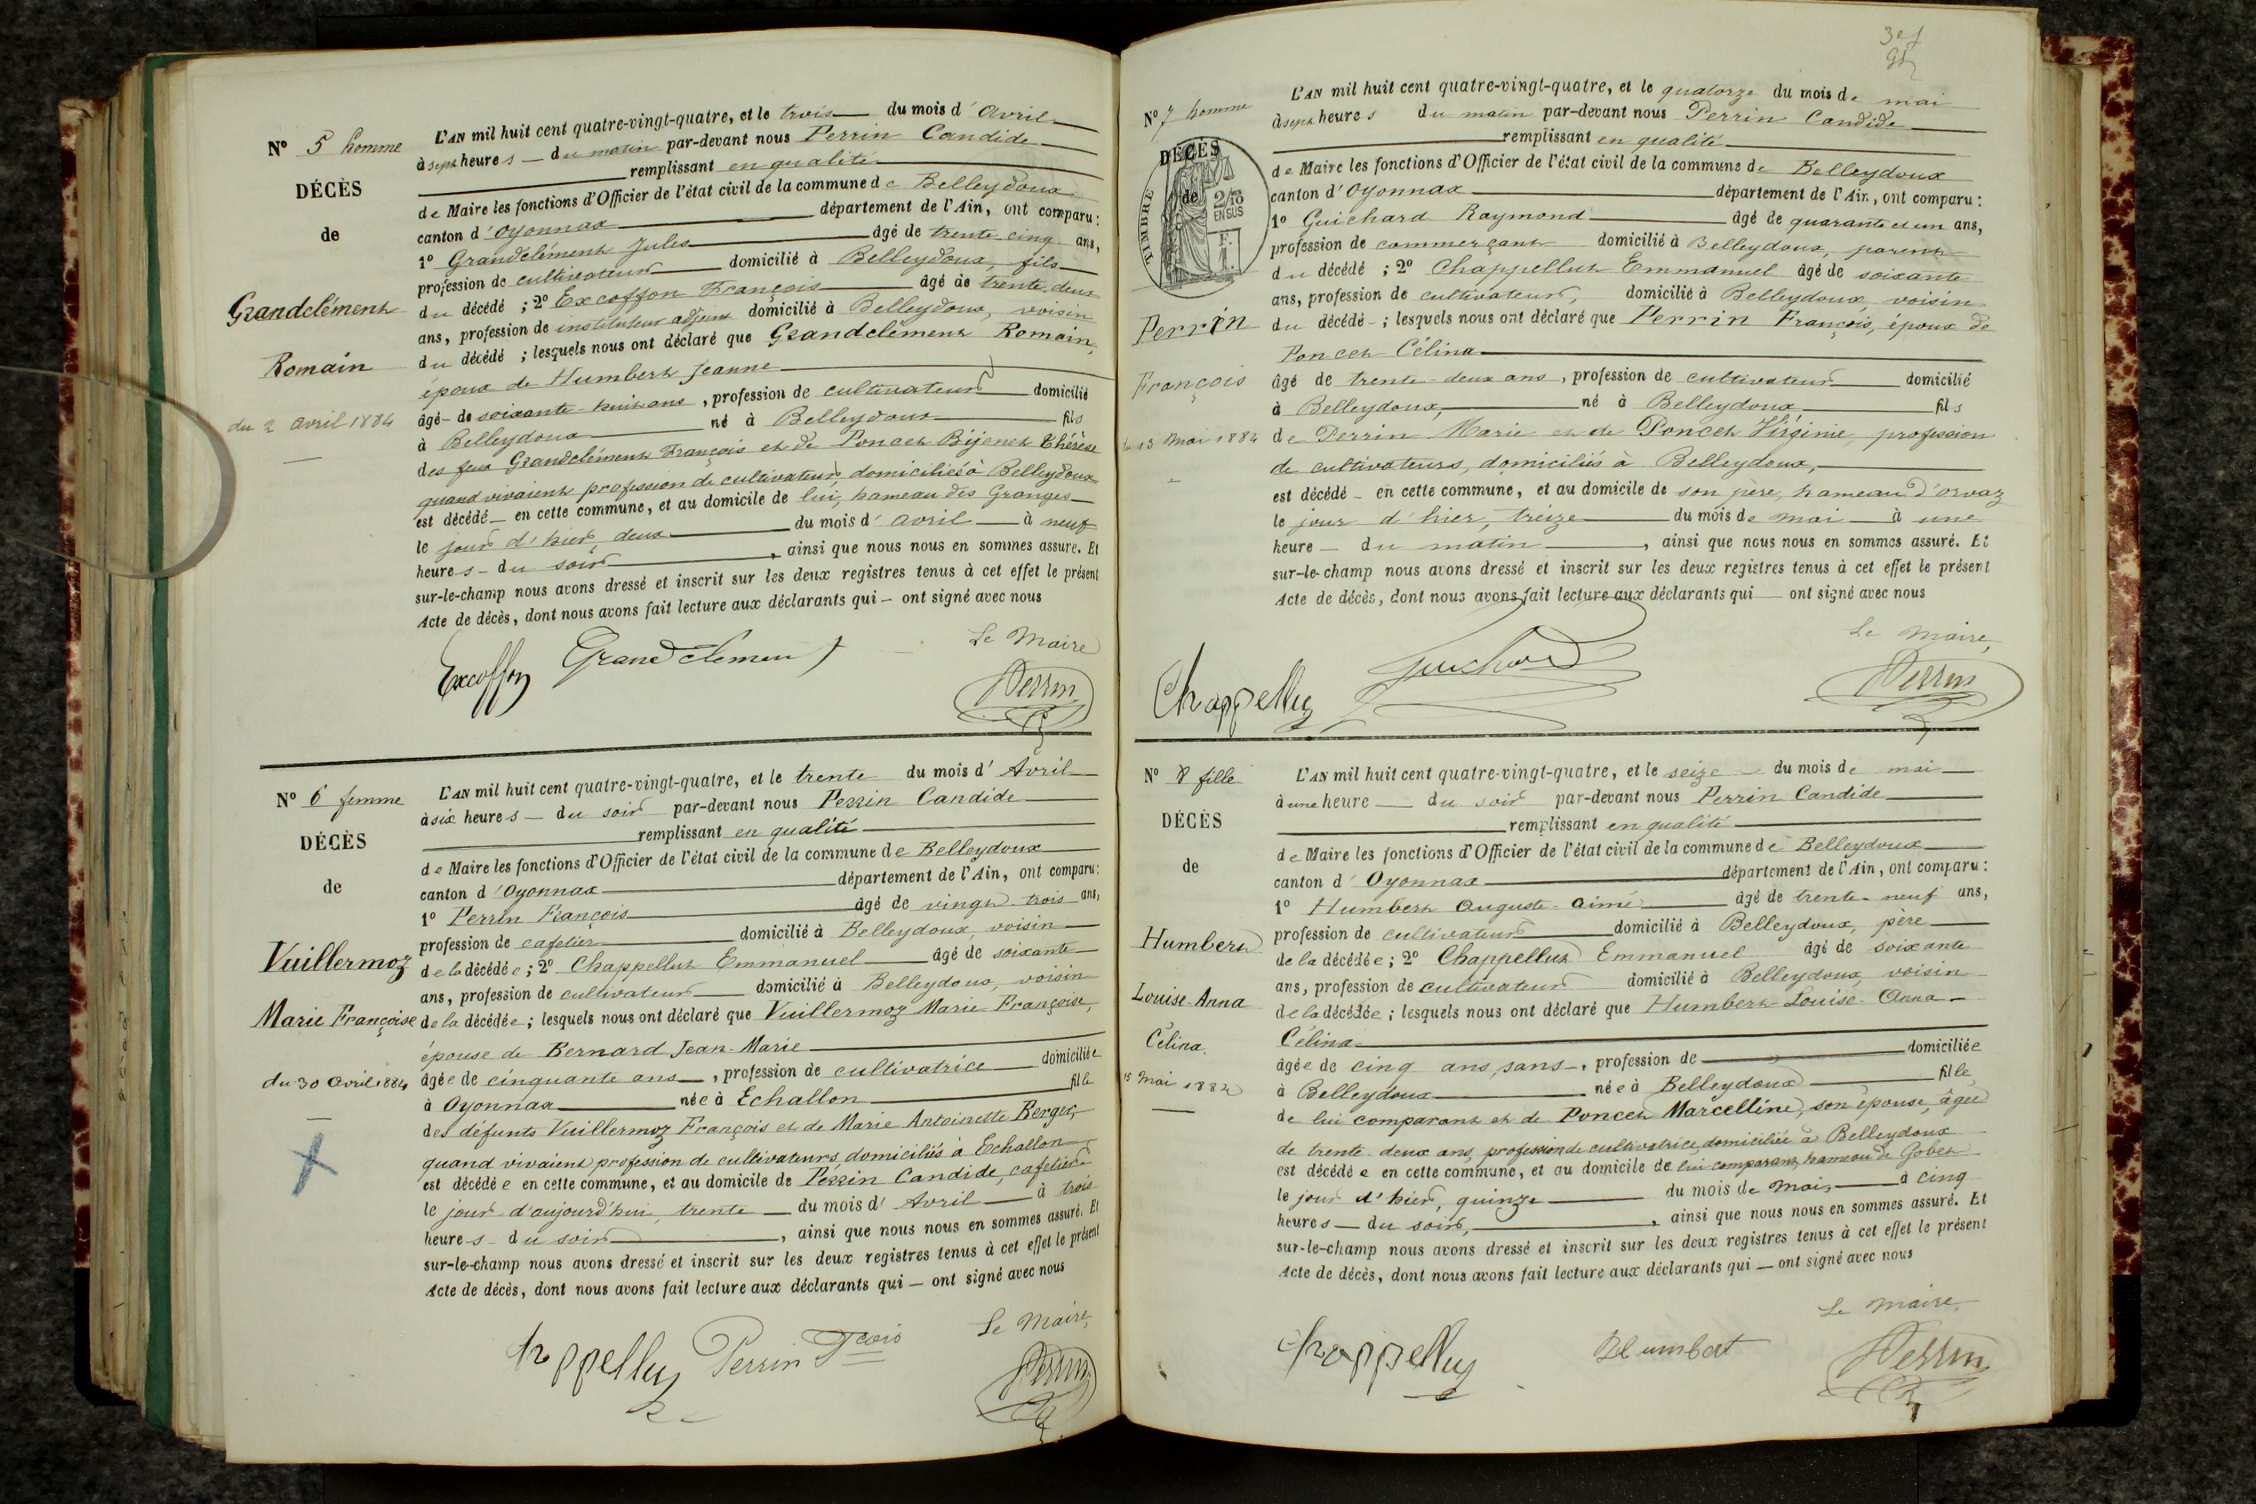 Nº 5 homme
DÉCÈS
de
Grandclément
Romain
du 2 avril 1884
L'AN mil huit cent quatre-vingt-quatre, et le trois du mois d'avril
à sept heures du matin par-devant nous Perrin Candide
remplissant en qualité
de Maire les fonctions d'Officier de l'état civil de la commune de Belleydoux
canton d'Oyonnax département de l'Ain, ont comparu:
1º Grandclément Jules âgé de trente cinq ans,
profession de cultivateur domicilié à Belleydoux, fils
du décédé ; 2º Excoffon François âgé de trente deux
ans, profession de instituteur adjoint domicilié à Belleydoux, voisin
du décédé ; lesquels nous ont déclaré que Grandclément Romain,
époux de Humbert Jeanne
âgé de soixante-huit ans, profession de cultivateur domicilié
à Belleydoux né à Belleydoux fils
des feux Grandclément François et de Poncet Bijenet Thérèse
quand vivaient profession de cultivateurs, domiciliés à Belleydoux
est décédé en cette commune, et au domicile de lui, hameau des Granges
le jour d'hier, deux du mois d'avril à neuf
heures du soir, ainsi que nous nous en sommes assuré. Et
sur-le-champ nous avons dressé et inscrit sur les deux registres tenus à cet effet le présent
Acte de décès, dont nous avons fait lecture aux déclarants qui — ont signé avec nous
Le Maire
Excoffon Grandclement Perrin
Nº 6 femme
DÉCÈS
de
Vuillermoz
Marie Françoise
du 30 avril 1884
L'AN mil huit cent quatre-vingt-quatre, et le trente du mois d'Avril
à six heures du soir par-devant nous Perrin Candide
remplissant en qualité
de Maire les fonctions d'Officier de l'état civil de la commune de Belleydoux
canton d'Oyonnax département de l'Ain, ont comparu:
1º Perrin François âgé de vingt-trois ans,
profession de cafetier domicilié à Belleydoux, voisin
de la décédée ; 2º Chappelluz Emmanuel âgé de soixante
ans, profession de cultivateur domicilié à Belleydoux, voisin
de la décédée ; lesquels nous ont déclaré que Vuillermoz Marie Françoise,
épouse de Bernard Jean-Marie
âgée de cinquante ans, profession de cultivatrice domiciliée
à Oyonnax née à Echallon fille
des défunts Vuillermoz François et de Marie Antoinette Berger,
quand vivaient profession de cultivateurs, domiciliés à Echallon
est décédée en cette commune, et au domicile de Perrin Candide, cafetier
le jour d'aujourd'hui, trente du mois d'Avril à trois
heures du soir, ainsi que nous nous en sommes assuré. Et
sur-le-champ nous avons dressé et inscrit sur les deux registres tenus à cet effet le présent
Acte de décès, dont nous avons fait lecture aux déclarants qui — ont signé avec nous
Le Maire,
Chappelluz Perrin Fçois Perrin
Nº 7 homme
DÉCÈS
de
TIMBRE
2/10
EN SUS
Perrin
François
13 Mai 1884
L'AN mil huit cent quatre-vingt-quatre, et le quatorze du mois de mai
à sept heures du matin par-devant nous Perrin Candide
remplissant en qualité
de Maire les fonctions d'Officier de l'état civil de la commune de Belleydoux
canton d'Oyonnax département de l'Ain, ont comparu:
1º Guichard Raymond âgé de quarante et un ans,
profession de commerçant domicilié à Belleydoux, parent
du décédé ; 2º Chappelluz Emmanuel âgé de soixante
ans, profession de cultivateur, domicilié à Belleydoux, voisin
du décédé ; lesquels nous ont déclaré que Perrin François, époux de
Poncet Célina
âgé de trente-deux ans, profession de cultivateur domicilié
à Belleydoux, né à Belleydoux fils
de Perrin Marie et de Poncet Virginie, profession
de cultivateurs, domiciliés à Belleydoux,
est décédé en cette commune, et au domicile de son père, hameau d'Orvaz
le jour d'hier, treize du mois de mai à une
heure du matin, ainsi que nous nous en sommes assuré. Et
sur-le-champ nous avons dressé et inscrit sur les deux registres tenus à cet effet le présent
Acte de décès, dont nous avons fait lecture aux déclarants qui — ont signé avec nous
Le Maire,
Chappelluz Guichard Perrin
Nº 8 fille
DÉCÈS
de
Humbert
Louise-Anna
Célina.
15 Mai 1884
L'AN mil huit cent quatre-vingt-quatre, et le seize du mois de mai
à une heure du soir par-devant nous Perrin Candide
remplissant en qualité
de Maire les fonctions d'Officier de l'état civil de la commune de Belleydoux
canton d'Oyonnax département de l'Ain, ont comparu:
1º Humbert Auguste-aimé âgé de trente-neuf ans,
profession de cultivateur domicilié à Belleydoux, père
de la décédée ; 2º Chappelluz Emmanuel âgé de soixante
ans, profession de cultivateur domicilié à Belleydoux, voisin
de la décédée ; lesquels nous ont déclaré que Humbert Louise-Anna
Célina
âgée de cinq ans, sans, profession de domiciliée
à Belleydoux née à Belleydoux fille
de lui comparant et de Poncet Marcelline, son épouse, âgée
de trente-deux ans, profession de cultivatrice, domiciliée à Belleydoux
est décédée en cette commune, et au domicile de lui comparant, hameau de Gobet
le jour d'hier, quinze du mois de mai à cinq
heures du soir, ainsi que nous nous en sommes assuré. Et
sur-le-champ nous avons dressé et inscrit sur les deux registres tenus à cet effet le présent
Acte de décès, dont nous avons fait lecture aux déclarants qui — ont signé avec nous
Le Maire,
Chappelluz Humbert Perrin